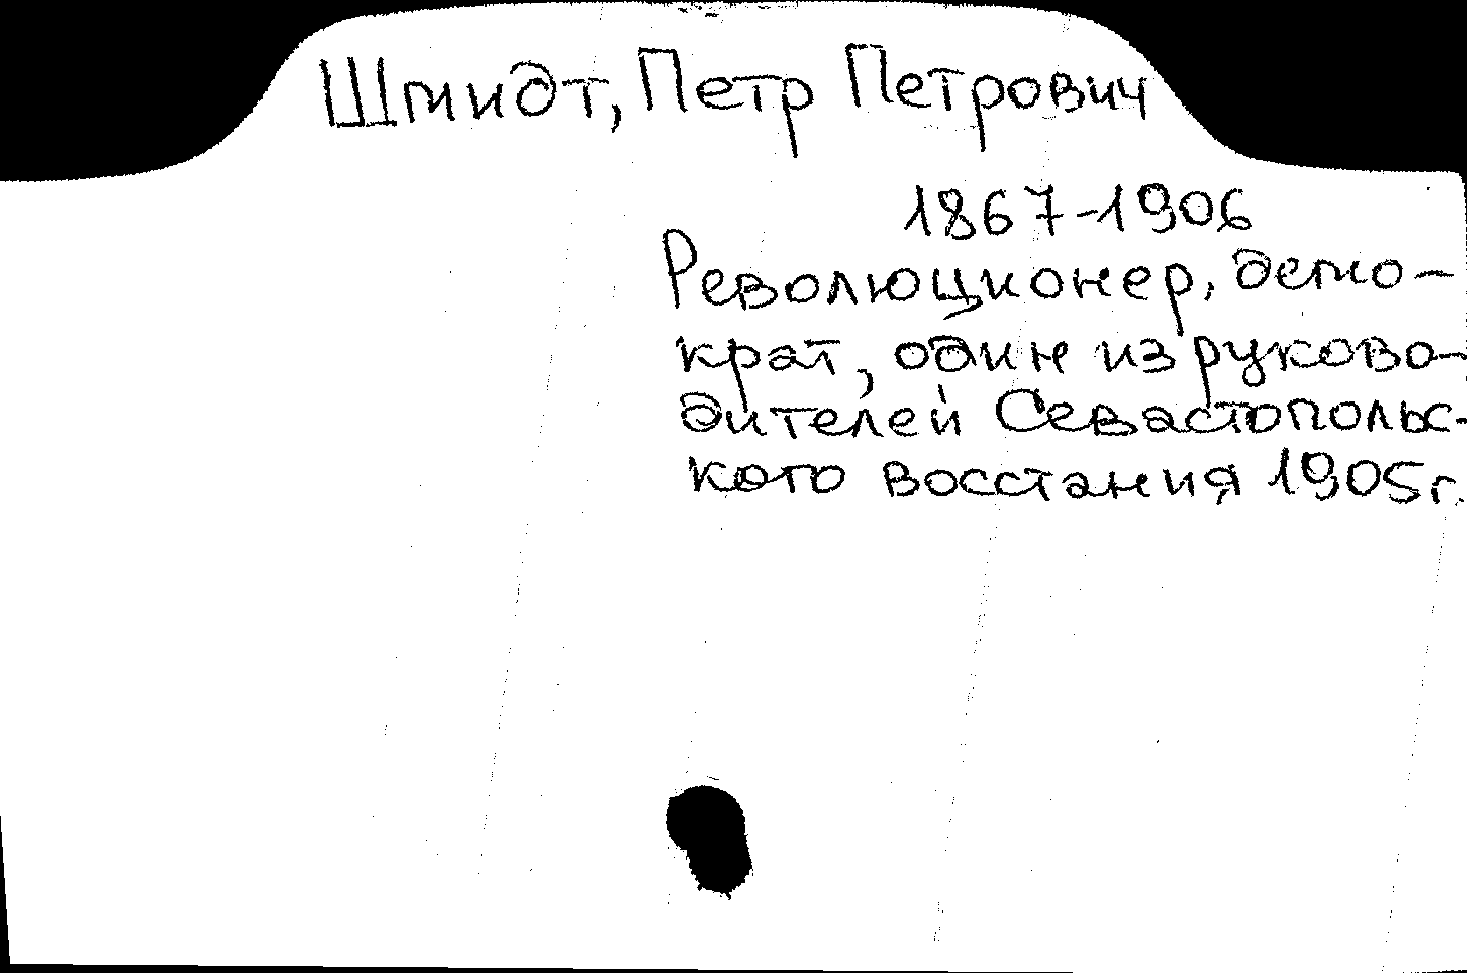 Шмидт, Петр Петрович
1867-1906
Революционер, демо-
крат, один из руково-
дителей Севастопольс-
кого восстания 1905г.